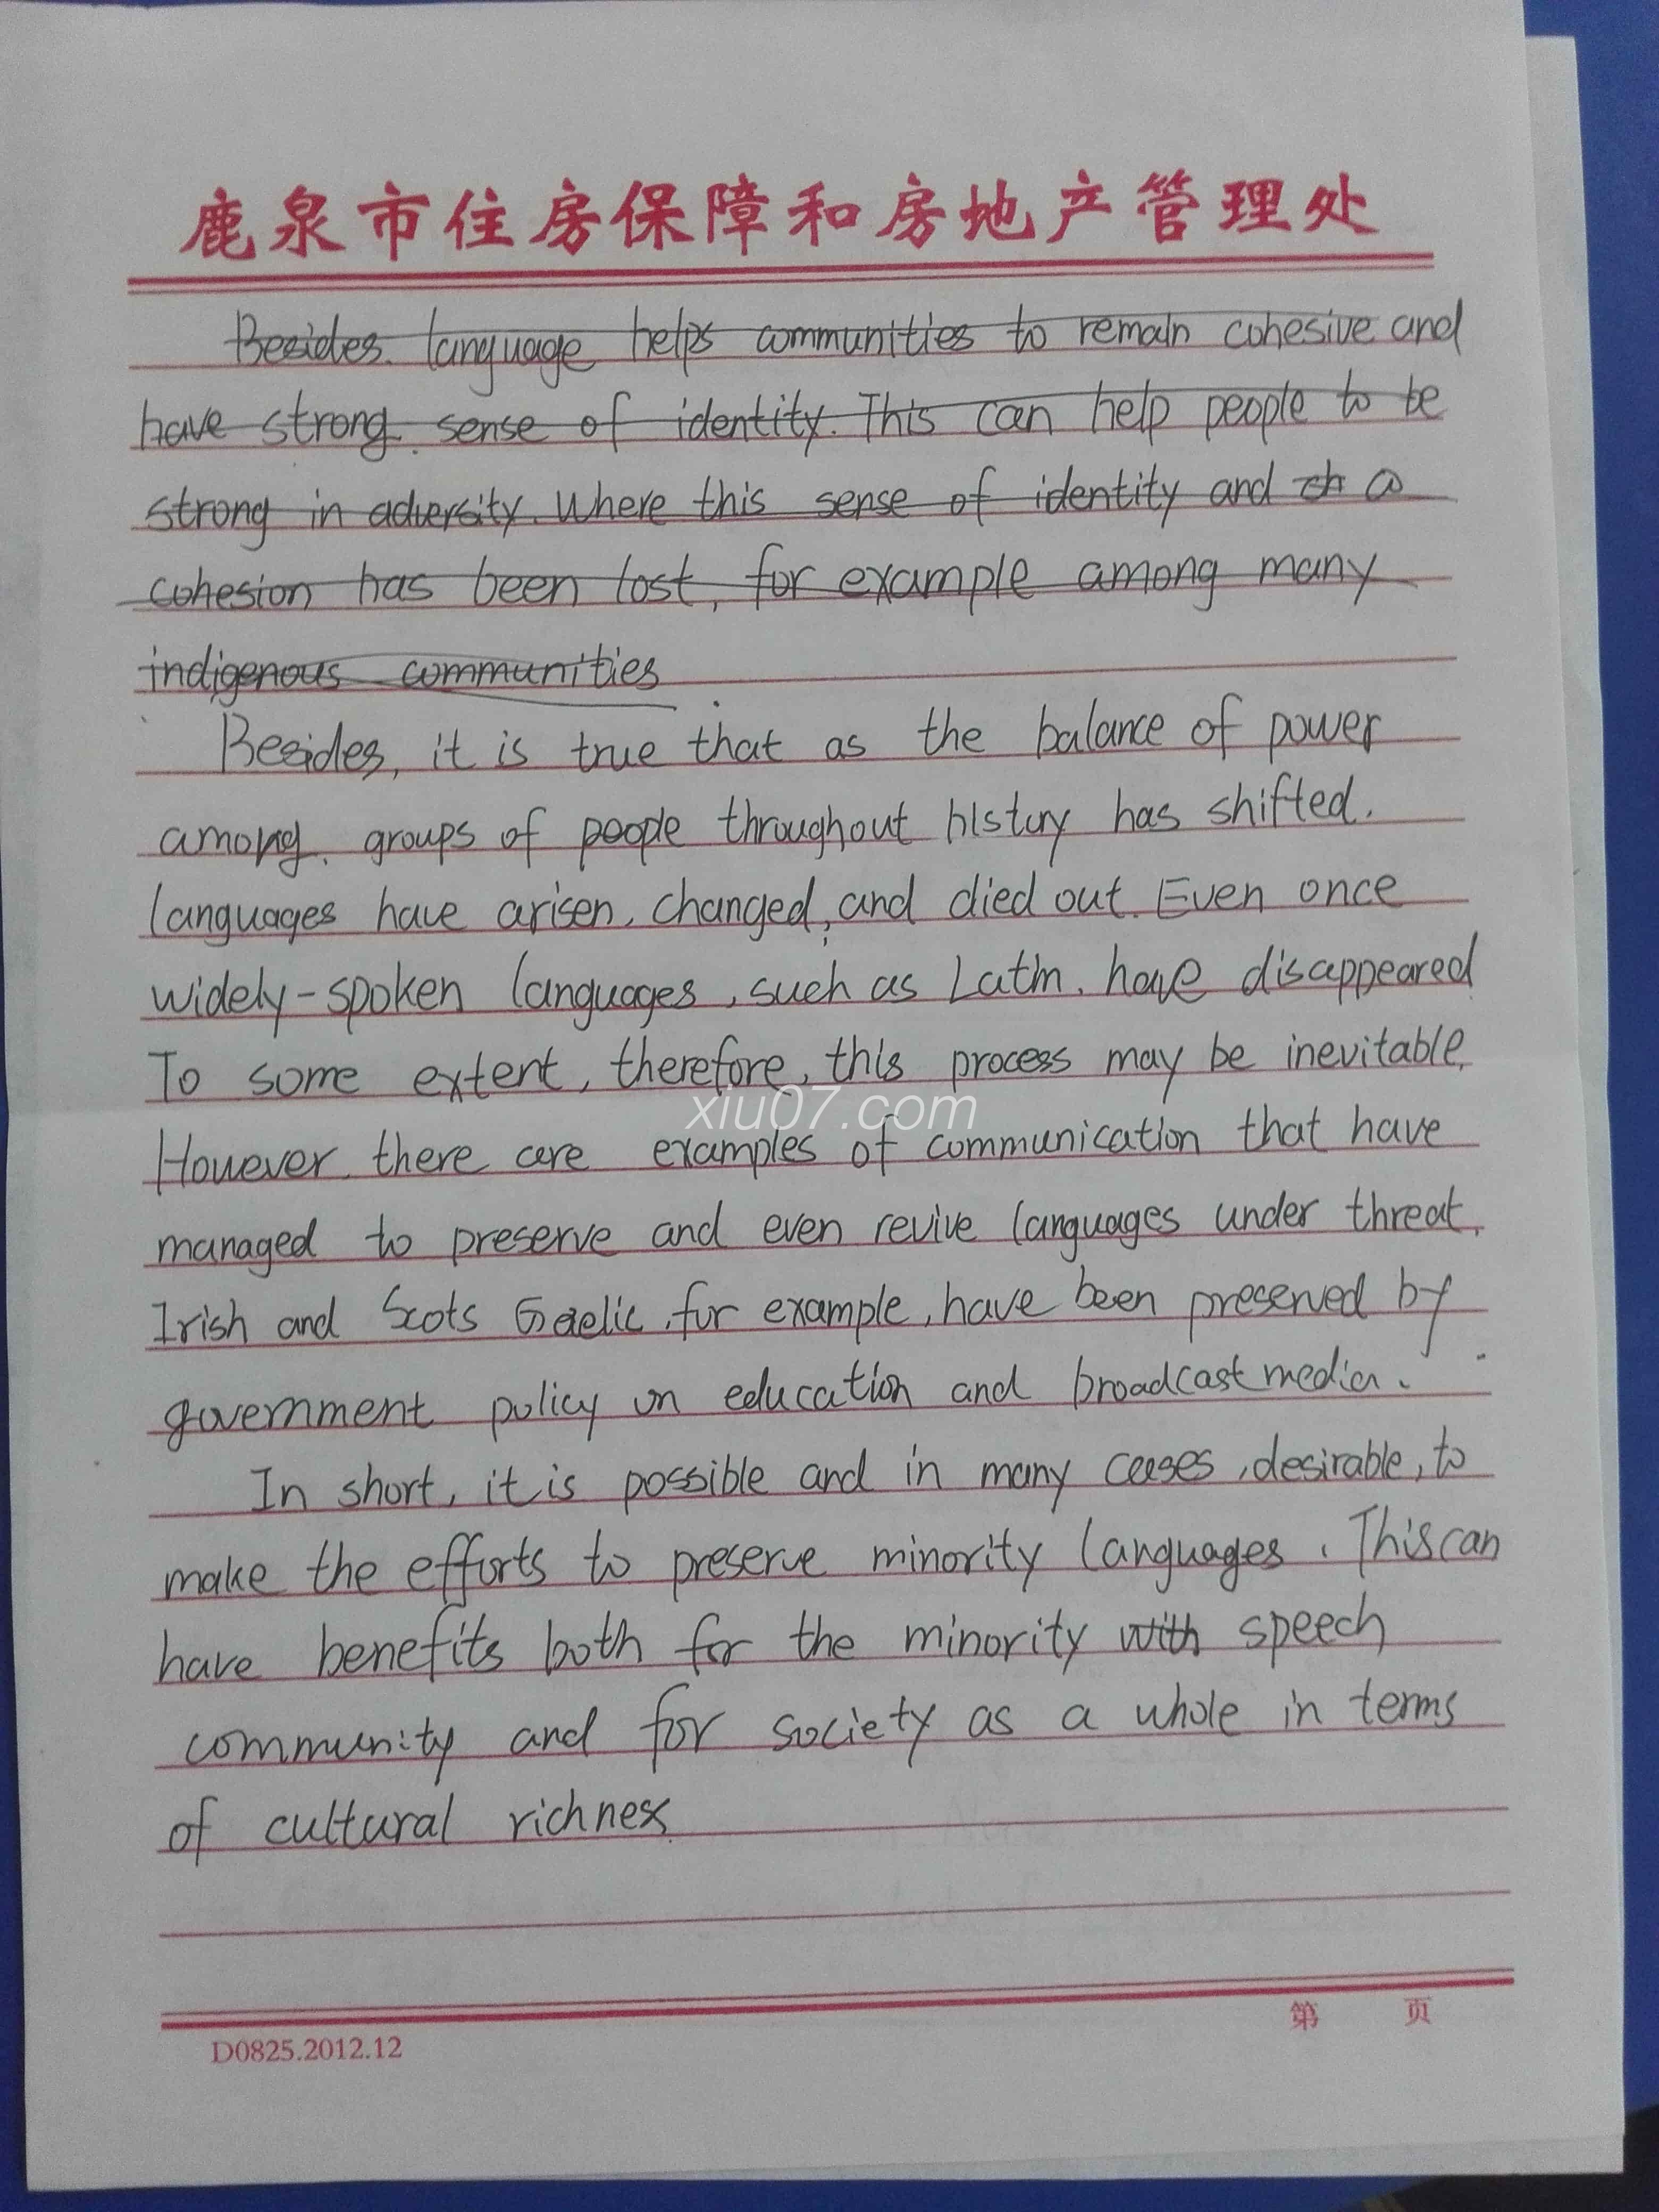 鹿泉市住房保障和房地产管理处
Besides. language helps communities to remain cohesive and
have strong sense of identity. This can help people to be
strong in adversity. Where this sense of identity and ch a
cohesion has been lost, for example among many
indigenous communities
Besides, it is true that as the balance of power
among. groups of people throughout history has shifted.
languages have arisen, changed, and died out. Even once
widely-spoken languages, such as Latin, have disappeared
To some extent, therefore, this process may be inevitable.
xiu07.com
However, there are examples of communication that have
managed to preserve and even revive languages under threat.
Irish and Scots Gaelic, for example, have been preserved by
government policy on education and broadcast media.
In short, it is possible and in many cases, desirable, to
make the efforts to preserve minority languages. This can
have benefits both for the minority with speech
community and for society as a whole in terms
of cultural richness
第 页
D0825.2012.12